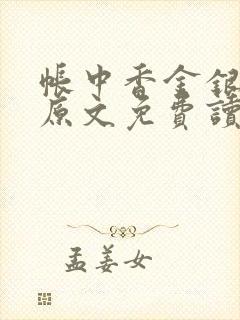 帳中香金銀
原文免費讀
孟姜女